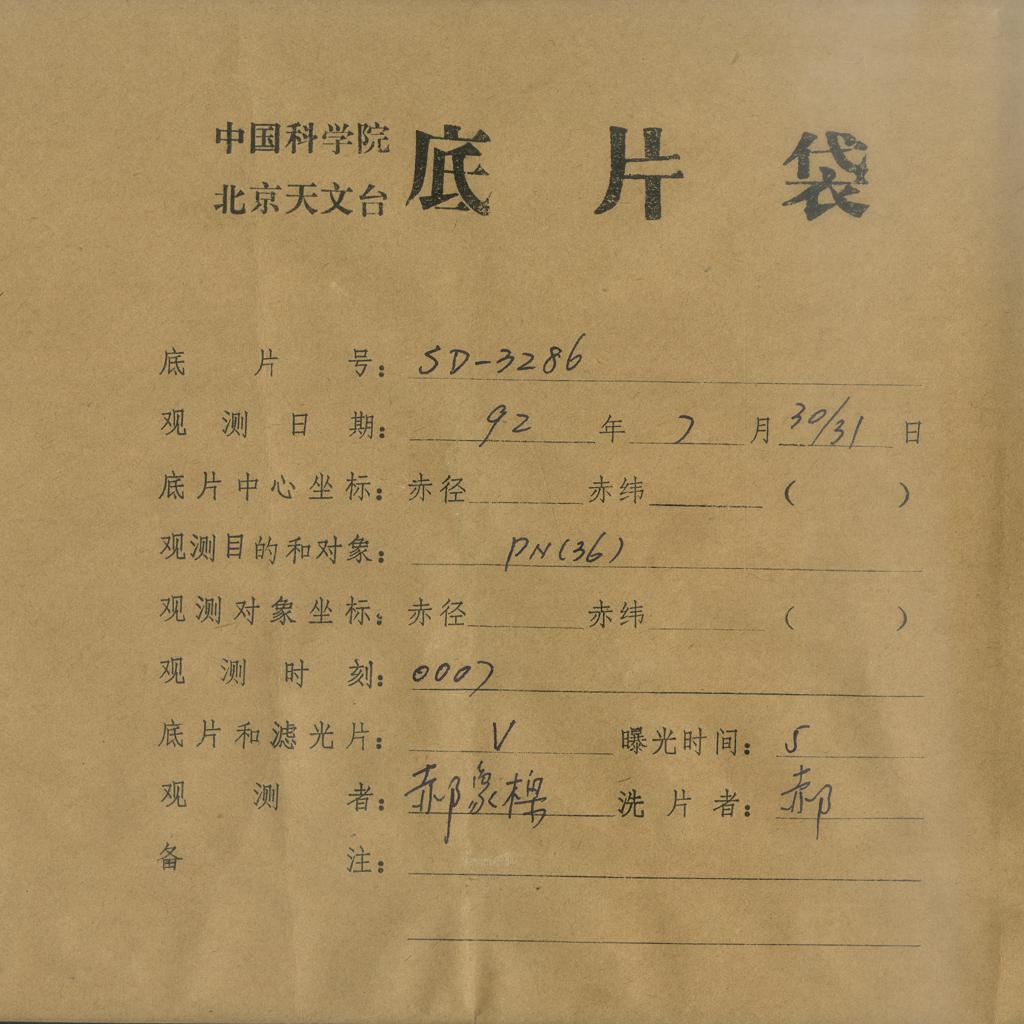 中国科学院
北京天文台
底片袋
底片号：SD-3286
观测日期：92年7月30/31日
底片中心坐标：赤径 赤纬 （ ）
观测目的和对象：PN(36)
观测对象坐标：赤径 赤纬 （ ）
观测时刻：0007
底片和滤光片：V 曝光时间：5
观测者：郝象樑 洗片者：郝
备注：